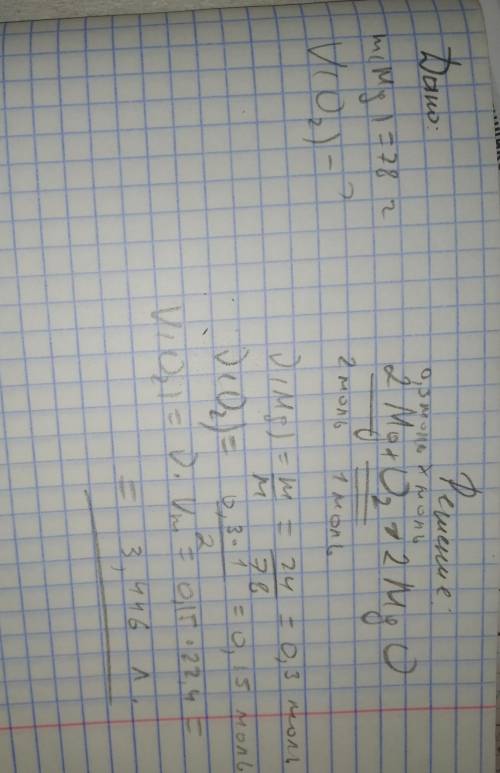 Дано:
m(Mg) = 78 г
V(O2) - ?
Решение:
0,3 моль x моль
2Mg + O2 → 2MgO
2 моль 1 моль
ν(Mg) = m/M = 24/78 = 0,3 моль
ν(O2) = 0,3·1/2 = 0,15 моль
V(O2) = ν·Vm = 0,15·22,4 =
= 3,446 л.